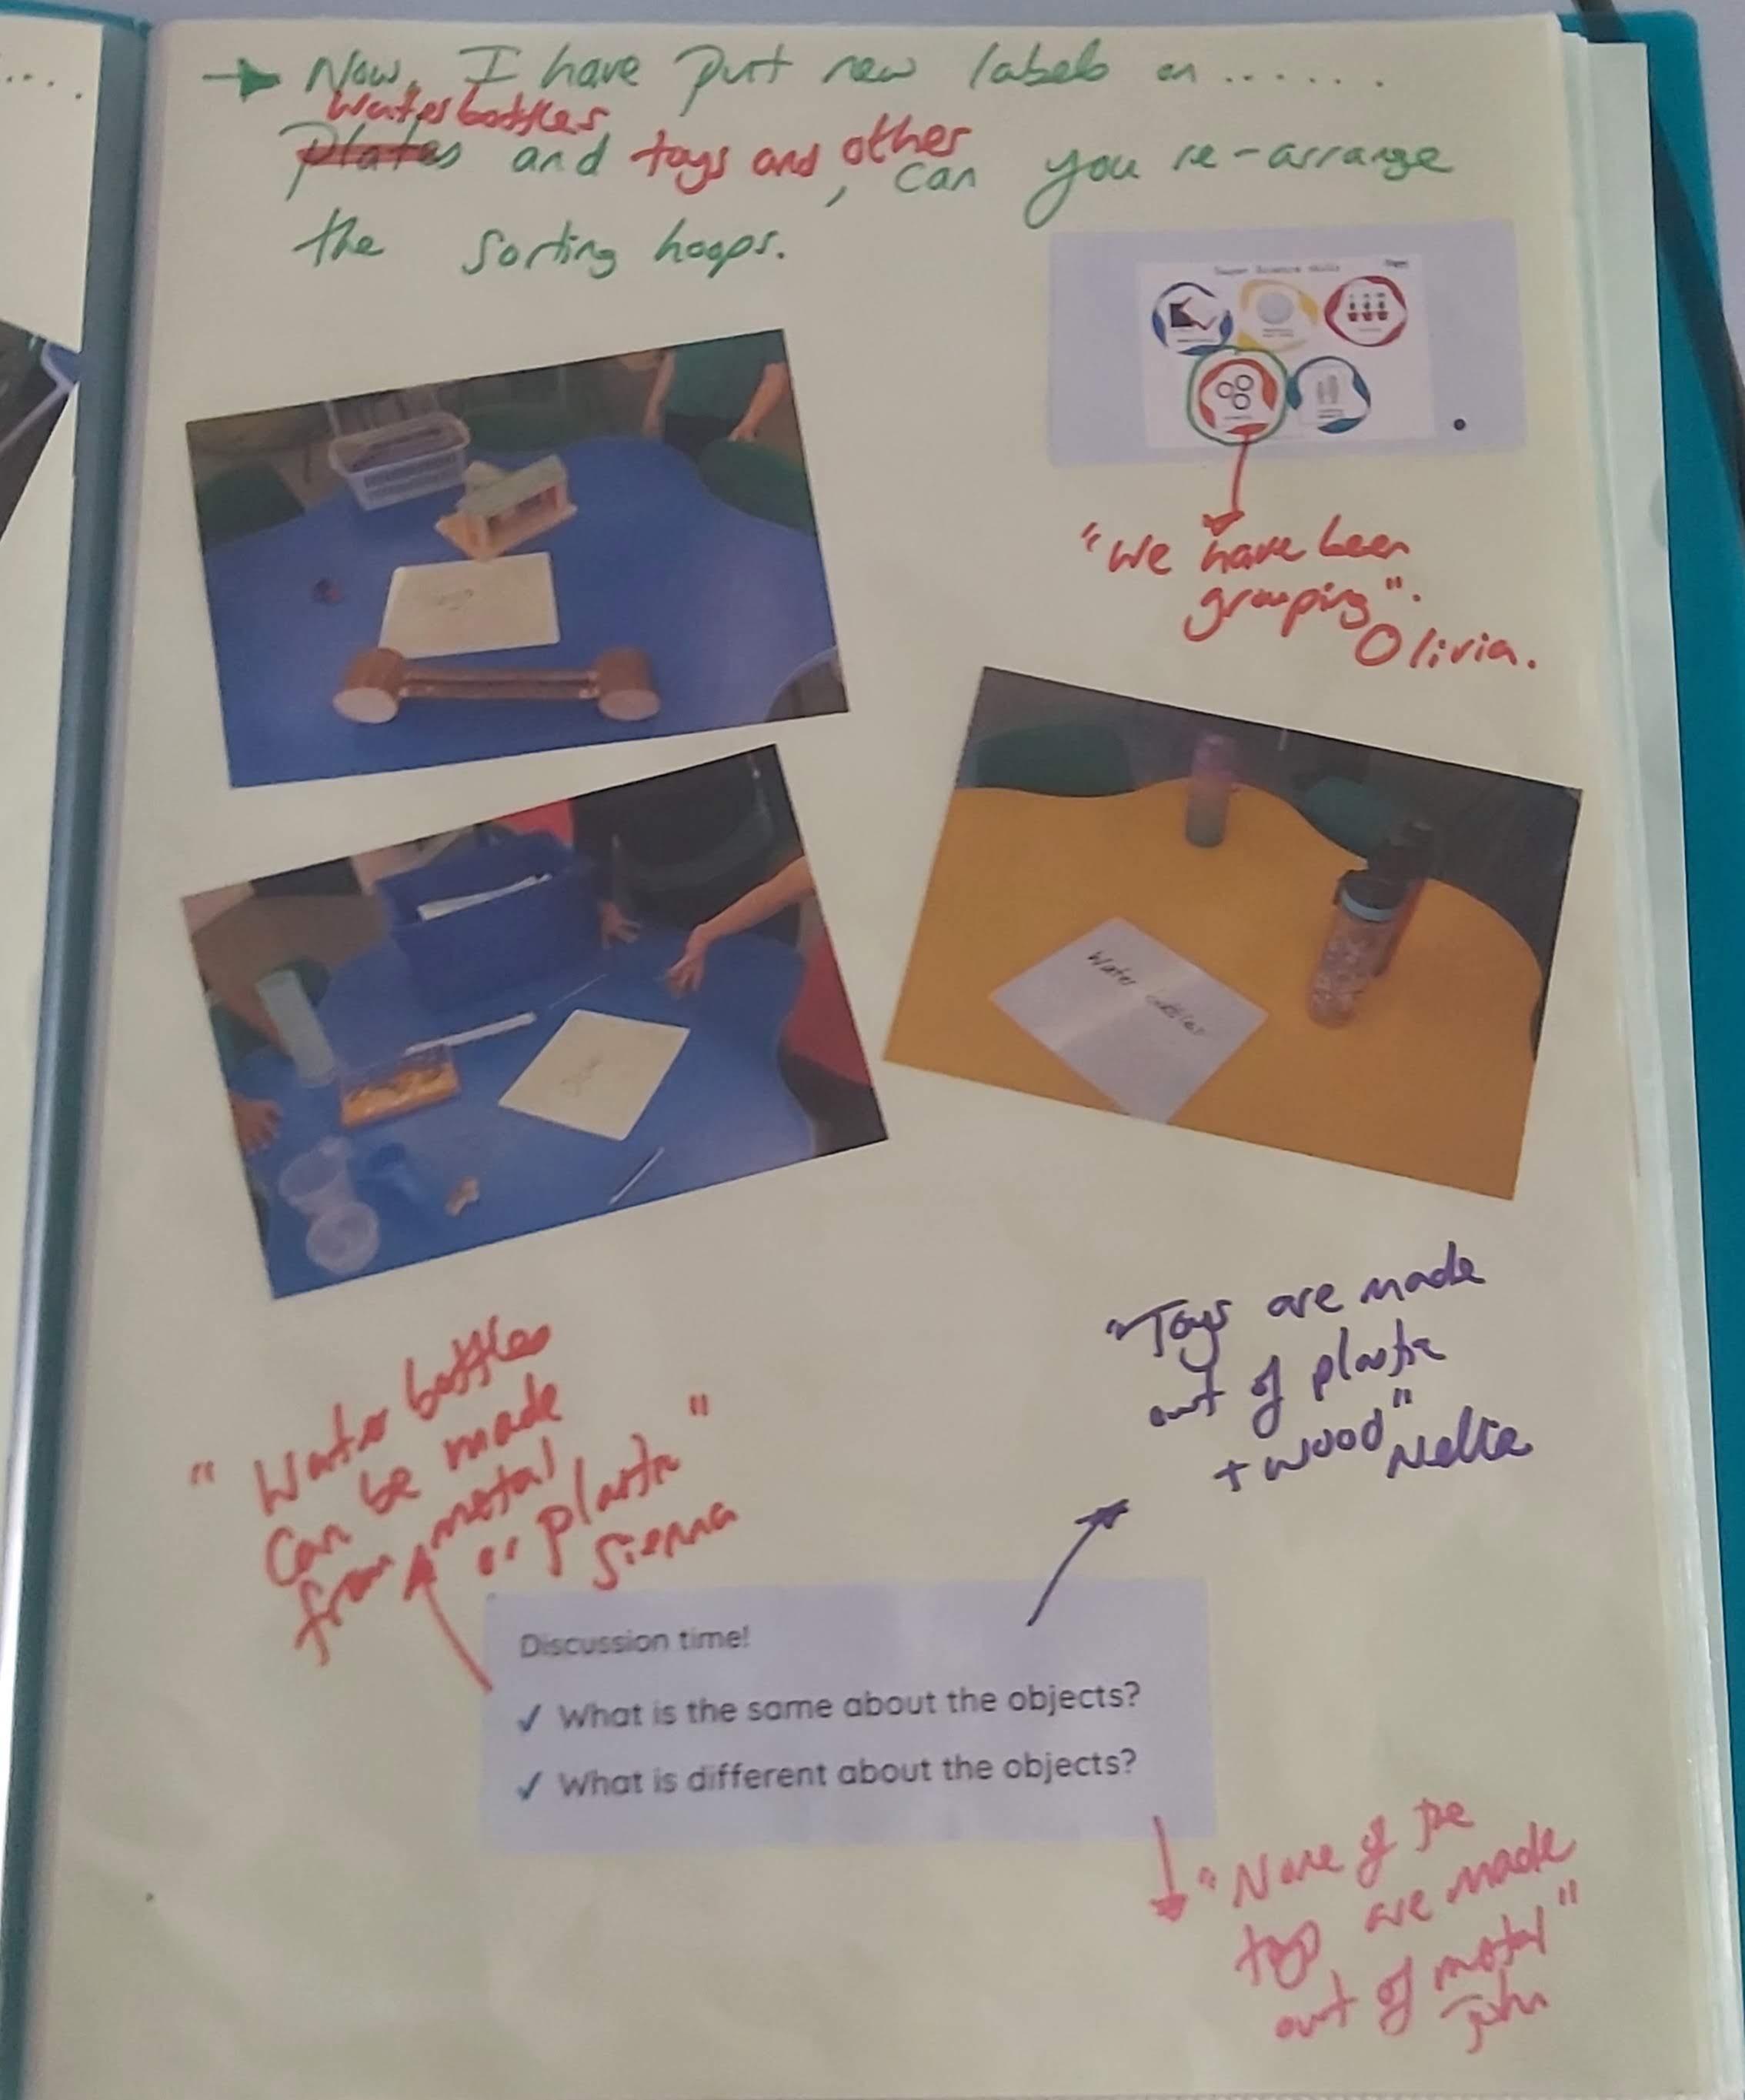 ....
→ Now, I have put new labels on .......
Waterbottles
Plates and toys and other, can you re-arrange
the sorting hoops.
Super Science Skills
"We have been
grouping".
Olivia.
Water bottles
"Toys are made
out of plastic
+ wood"
Nellie
"Water bottles
can be made
from metal
or plastic"
Sienna
Discussion time!
✓ What is the same about the objects?
✓ What is different about the objects?
"None of the
toys are made
out of metal"
John